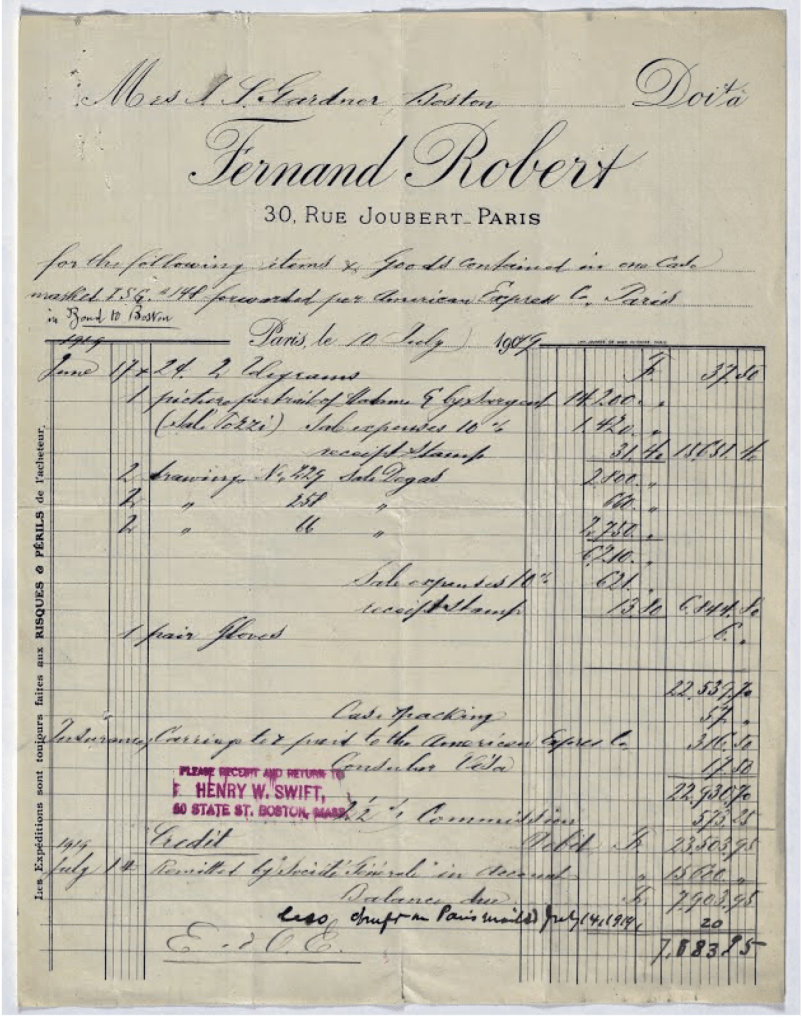 Mrs J. L. Gardner Boston Doit à
Fernand Robert
30, RUE JOUBERT_PARIS
for the following items & Goods contained in one Case
market I.S.G. #148 forwarded per American Express Co, Paris
in Bond to Boston
Paris, le 10 July 1909
1919
June 17 & 24. 2 Telegrams F 37.50
1 picture portrait of Madame G by Sargent 14200. "
(Sale Pozzi) Sale expenses 10 % 1.420. "
receipt Stamp 31.40 15651.40
2 drawings No. 229 Sale Degas 2800. "
2 " 258 " 660. "
2 " 66 " 2.750. "
6210. "
Sale expenses 10 % 621. "
receipt Stamp 13.80 6.844.80
1 pair Gloves 6. "
22.539.70
Case & packing 57. "
Insurance, Carriage &c paid to the American Express Co 316.50
Consular Visa 17.50
22.930.70
2 1/2 % Commission 573.25
1919 Credit Debit F 23.503.95
July 14 Remitted by "Société Générale" in Account " 15600. "
Balance due F 7.903.95
less draft on Paris mailed July 14, 1919, 20
7,883 95
E. & O. E.
PLEASE RECEIPT AND RETURN TO
HENRY W. SWIFT,
60 STATE ST. BOSTON, MASS.
Les Expéditions sont toujours faites aux RISQUES & PÉRILS de l'acheteur.